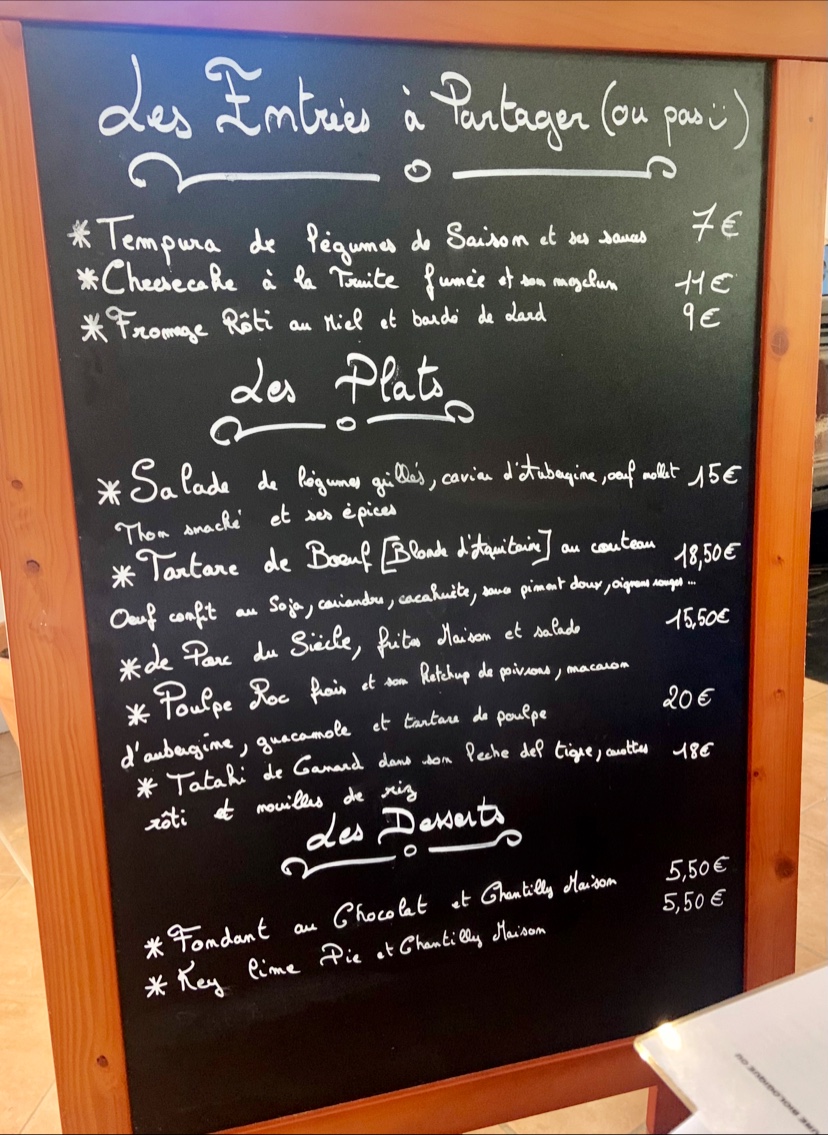 Les Entrées à Partager (ou pas ü)
* Tempura de légumes de Saison et ses sauces 7€
* Cheesecake à la Truite fumée et son mesclun 11€
* Fromage Rôti au Miel et bardé de Lard 9€
Les Plats
* Salade de légumes grillés, caviar d'Aubergine, oeuf mollet 15€
Thon snacké et ses épices
* Tartare de Boeuf [Blonde d'Aquitaine] au couteau 18,50€
Oeuf confit au Soja, coriandre, cacahuète, sauce piment doux, oignons rouges...
* de Parc du Siècle, frites Maison et salade 15,50€
* Poulpe Roc frais et son Ketchup de poivrons, macaron
d'aubergine, guacamole et tartare de poulpe 20€
* Tataki de Canard dans son Leche del tigre, carottes 18€
rôti et nouilles de riz
Les Desserts
* Fondant au Chocolat et Chantilly Maison 5,50€
* Key lime Pie et Chantilly Maison 5,50€
URE BIOLOGIQUE OU